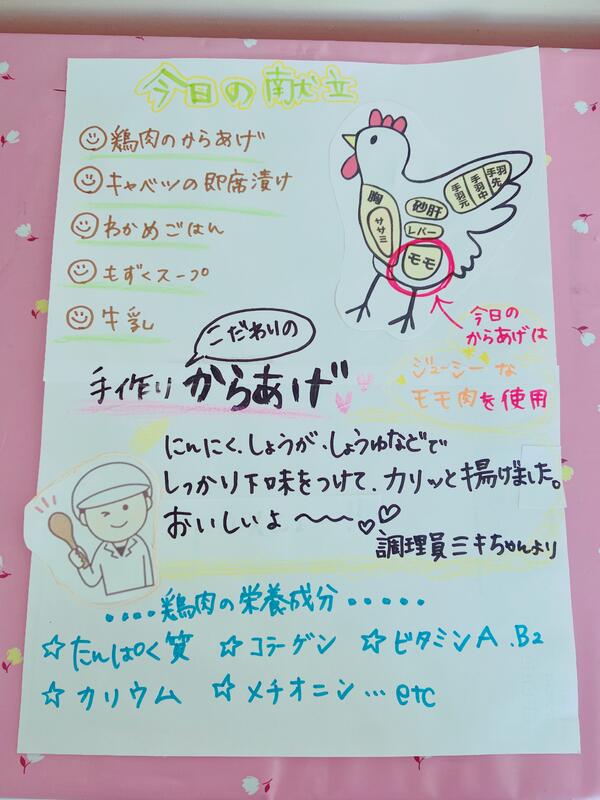 今日の献立
鶏肉のからあげ
キャベツの即席漬け
わかめごはん
もずくスープ
牛乳
胸
ササミ
砂肝
レバー
モモ
手羽元
手羽中
手羽先
今日の
からあげは
ジューシーな
モモ肉を使用
こだわりの
手作りからあげ
にんにく、しょうが、しょうゆなどで
しっかり下味をつけて、カリッと揚げました。
おいしいよ〜〜♡♡
調理員ミキちゃんより
....鶏肉の栄養成分.....
☆たんぱく質 ☆コラーゲン ☆ビタミンA.B2
☆カリウム ☆メチオニン…etc